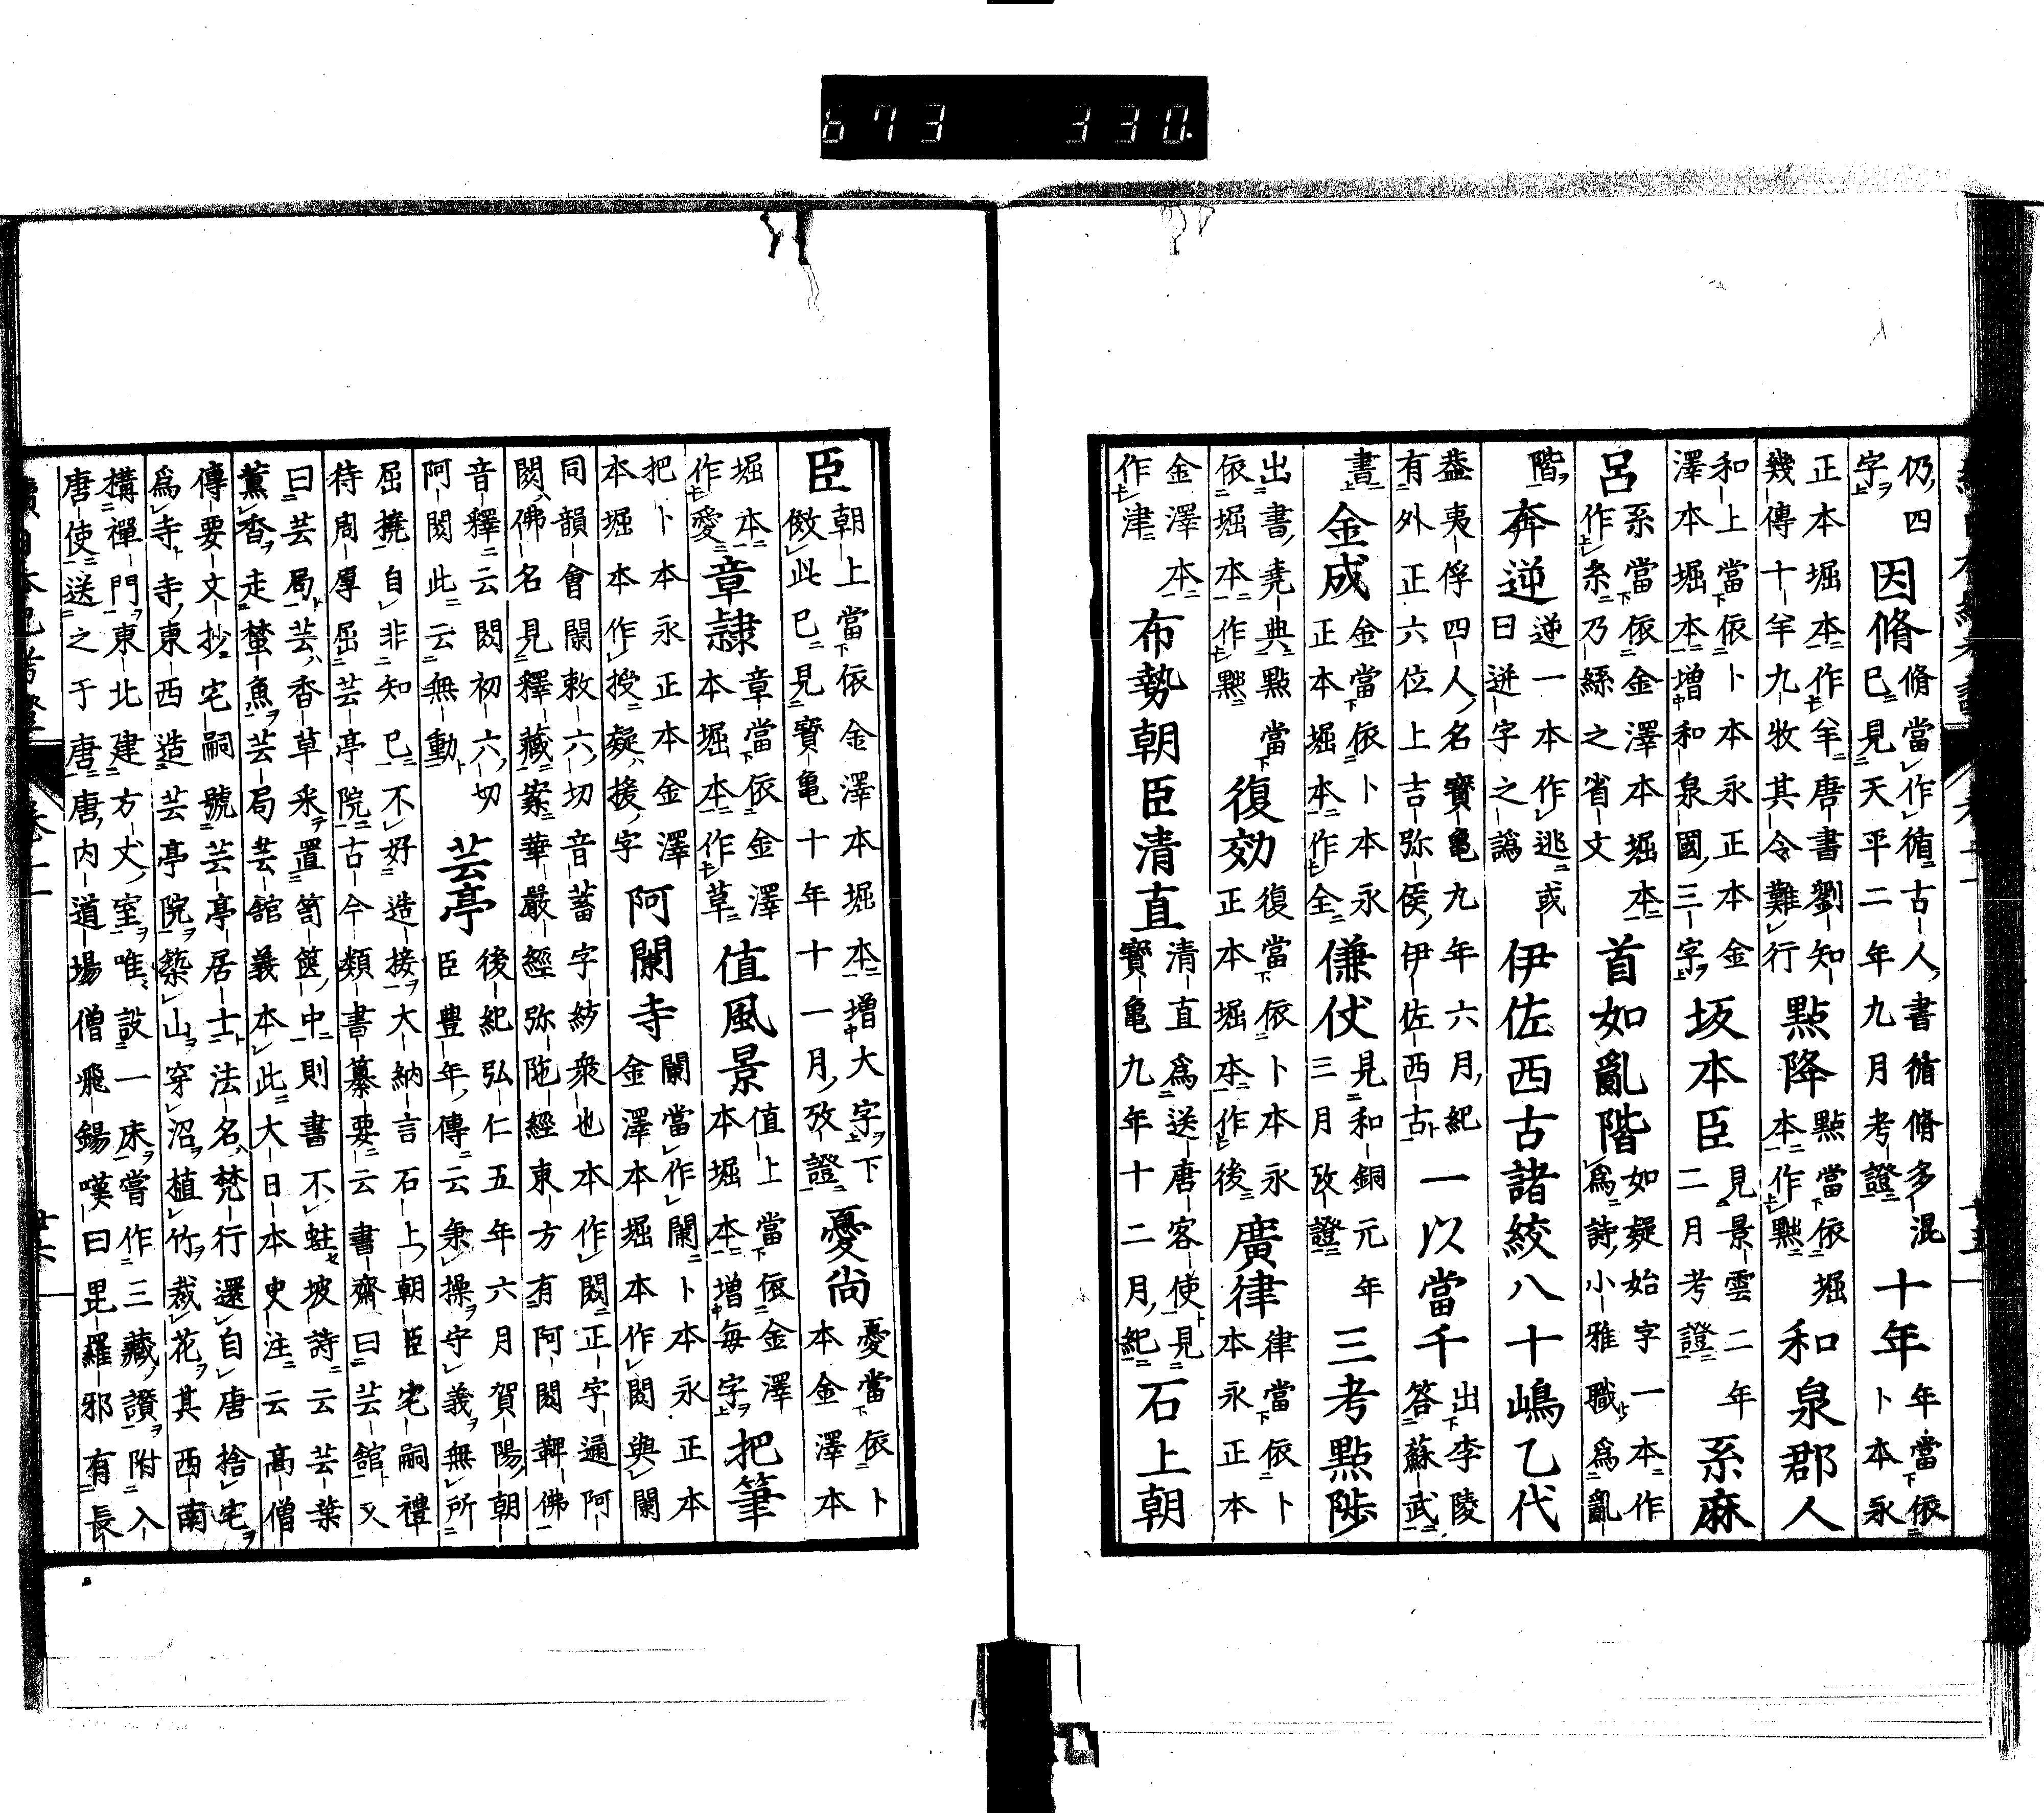 仍四字因脩脩當作循古人書循脩多混已見天平二年九月考證十年年當依卜本永
正本堀本作羊唐書劉知幾傳十羊九牧其令難行點降點當依堀本作黜和泉郡人
和上當依卜本永正本金澤本堀本增和泉國三字坂本臣見景雲二年二月考證系麻
呂系當依金澤本堀本作糸乃絲之省文首如亂階如疑始字一本作爲詩小雅職爲亂
階奔逆逆一本作逃或曰迸字之譌伊佐西古諸絞八十嶋乙代
蓋夷俘四人名寶龜九年六月紀有外正六位上吉弥侯伊佐西古一以當千出李陵答蘇武
書金成金當依卜本永正本堀本作全傔仗見和銅元年三月攷證三考點陟
出書堯典點當依堀本作黜復効復當依卜本永正本堀本作後廣律律當依卜本永正本
金澤本作津布勢朝臣清直清直爲送唐客使見寶龜九年十二月紀石上朝
臣朝上當依金澤本堀本增大字下倣此已見寶龜十年十一月攷證憂尚憂當依卜本金澤本
堀本作愛章隷章當依金澤本堀本作草值風景值上當依金澤本堀本增每字把筆
把卜本永正本金澤本堀本作授疑援字阿闌寺闌當作閦卜本永正本金澤本堀本作閦與闌
同韻會闌敕六切音蓄字紡衆也本作閦正字通阿閦佛名見釋藏案華嚴經弥陁經東方有阿閦鞞佛
音釋云閦初六切阿閦此云無動芸亭後紀弘仁五年六月賀陽朝臣豊年傳云秉操守義無所
屈撓自非知己不好造接大納言石上朝臣宅嗣禮待周厚屈芸亭院古今類書纂要云書齋曰芸館又
曰芸局芸香草采置笥篋中則書不蛀坡詩云芸葉薰香走蠹魚芸局芸館義本此大日本史注云高僧
傳要文抄宅嗣號芸亭居士法名梵行還自唐捨宅爲寺寺東西造芸亭院築山穿沼植竹栽花其西南
構禪門東北建方丈室唯設一床嘗作三藏讃附入唐使送之于唐唐内道場僧飛錫嘆曰毘羅邪有長